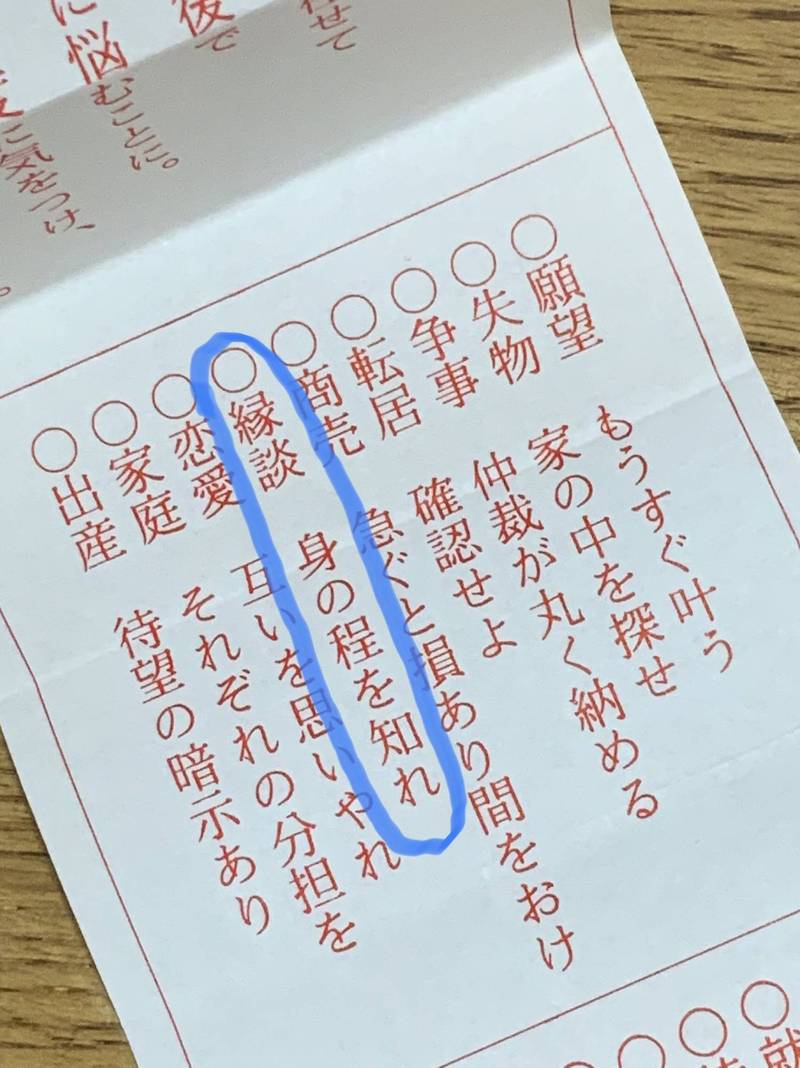 せて
後で
に悩むことに。
に気をつけ、
。
○願望 もうすぐ叶う
○失物 家の中を探せ
○争事 仲裁が丸く納める
○転居 確認せよ
○商売 急ぐと損あり間をおけ
○縁談 身の程を知れ
○恋愛 互いを思いやれ
○家庭 それぞれの分担を
○出産 待望の暗示あり
○就
○
○